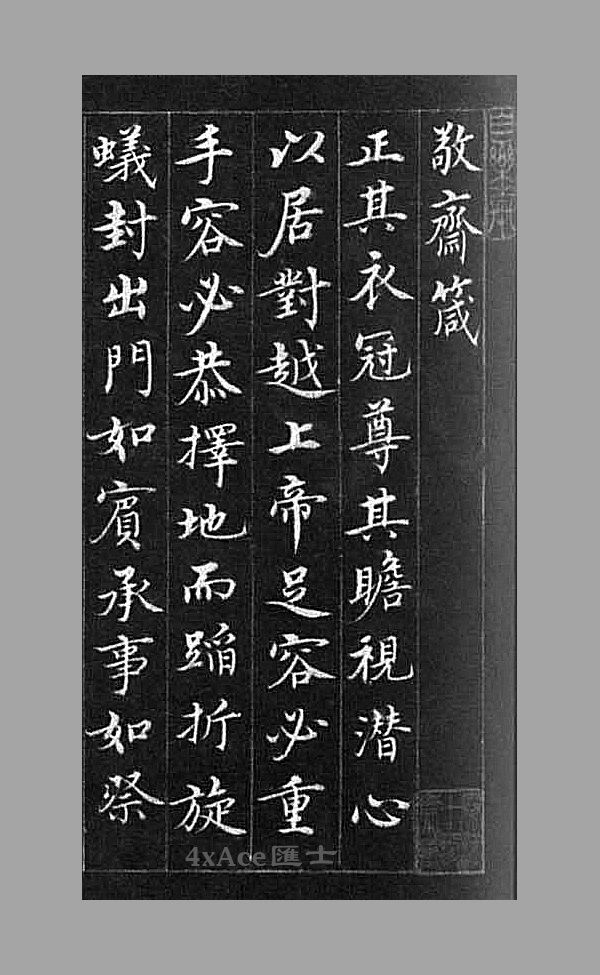 敬齋箴
正其衣冠尊其瞻視潛心
以居對越上帝足容必重
手容必恭擇地而蹈折旋
蟻封出門如賓承事如祭
4xAce匯士